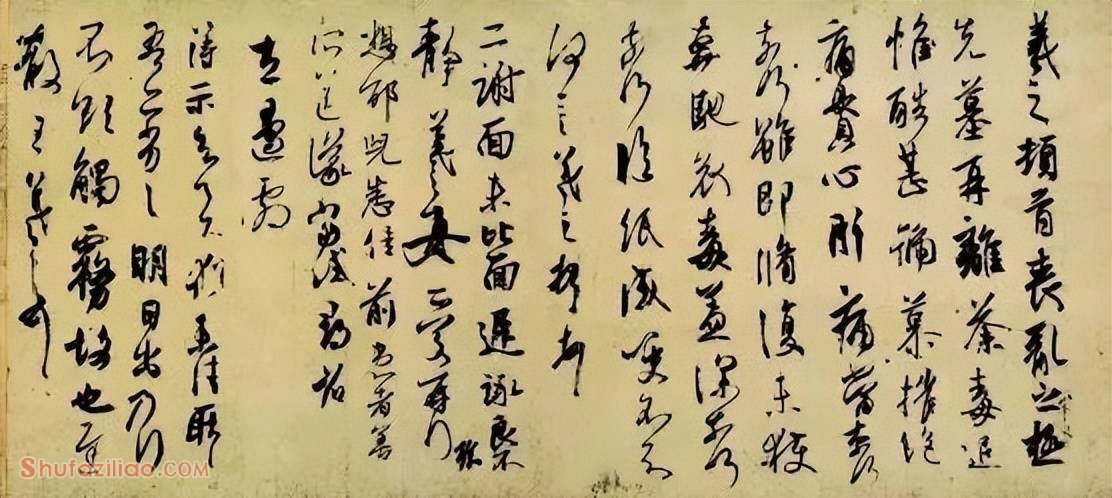 羲之頓首喪亂之極
先墓再離荼毒追
惟酷甚號慕摧絕
痛貫心肝痛當奈何
奈何雖即脩復未獲
奔馳哀毒益深奈何
奈何臨紙感哽不知
何言羲之頓首頓首
二謝面未比面遲詠良不
靜羲之女愛再拜
想邵兒悉佳前患者善
所送議當試尋省
左邊劇
得示知足下猶未佳耿耿
吾亦劣劣明日出乃行
不欲觸霧故也遲
散王羲之頓首
Shufaziliao.COM